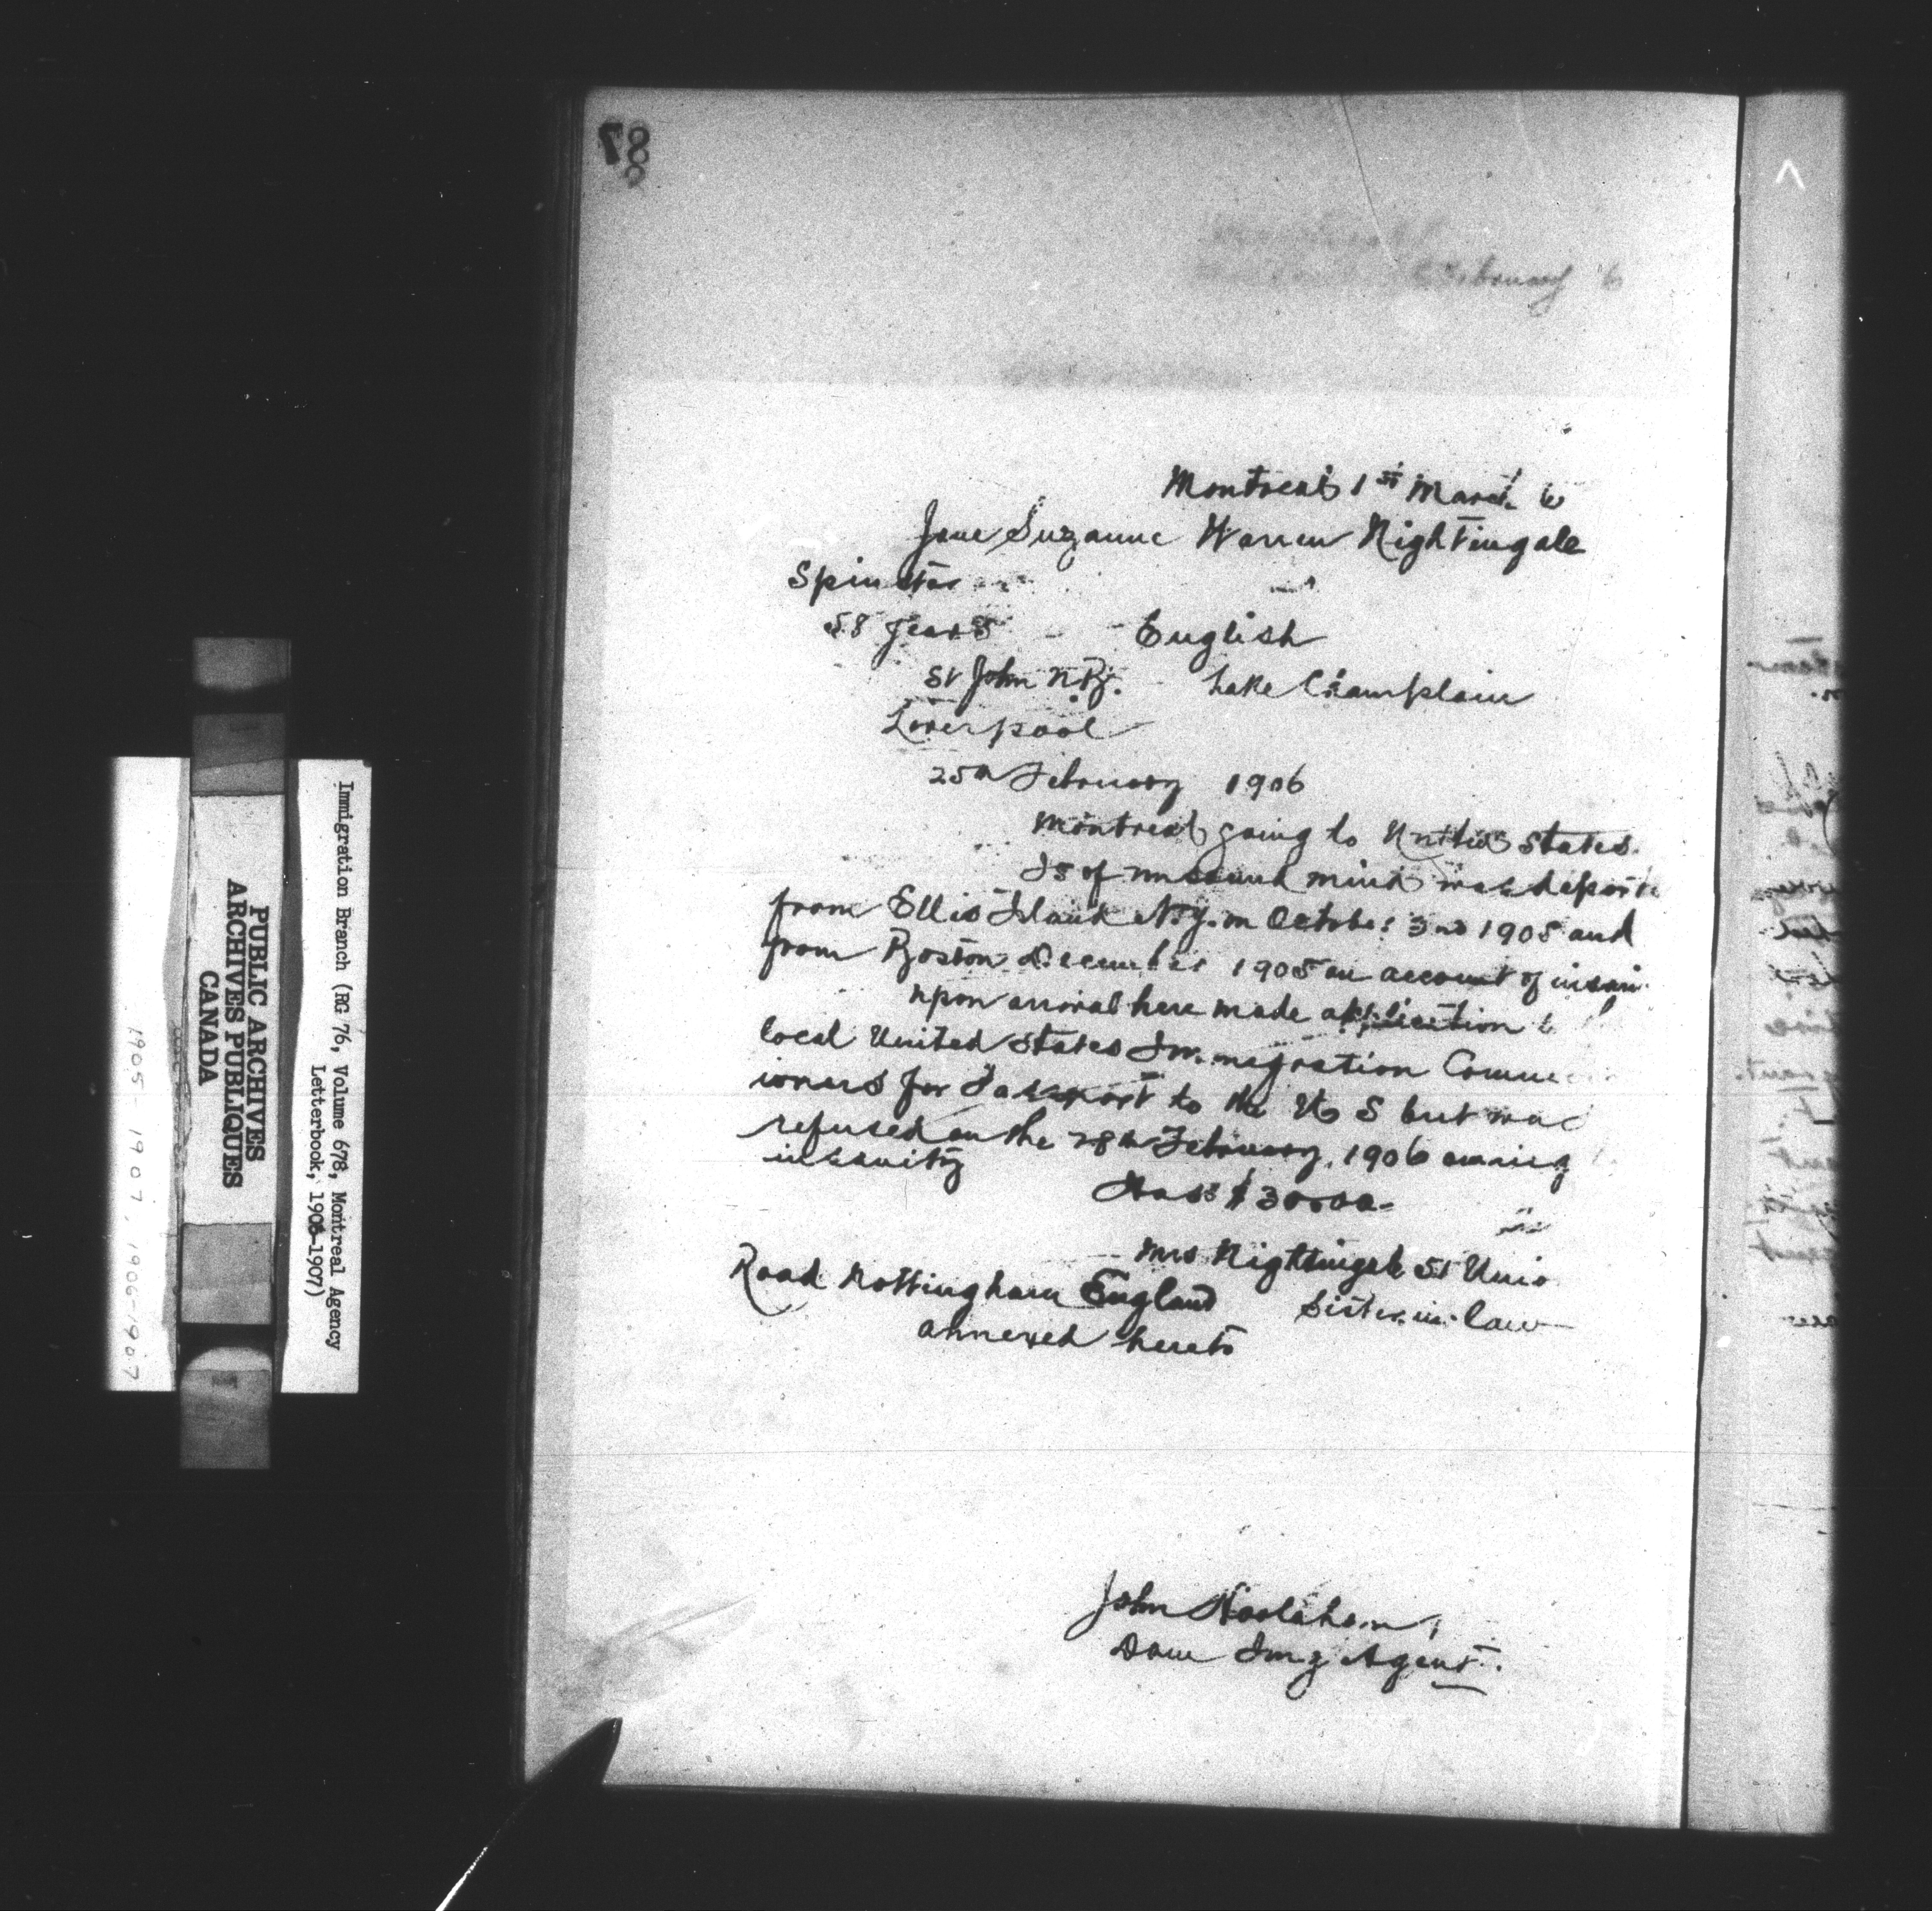 87
February 6
Montreal 1st March 6
Jane Suzanne Warren Nightingale
Spinster
58 years English
St John N.B. Lake Champlain
Liverpool
25th February 1906
Montreal going to United States.
Is of unsound mind was deporte
from Ellis Island N.Y. on October 3rd 1905 and
from Boston December 1905 on account of insani
upon arrival here made application t
local United States Immigration Commi
ioners for Passport to the U S but was
refused on the 28th February, 1906 owing
insanity
Has $30.00
Mrs Nightingale 51 Unio
Road Nottingham England Sister in law
annexed hereto
John Hoolahan,
Dom Img Agent.
PUBLIC ARCHIVES
ARCHIVES PUBLIQUES
CANADA
Immigration Branch (RG 76, Volume 678, Montreal Agency
Letterbook, 1905-1907)
1905-1907, 1906-1907